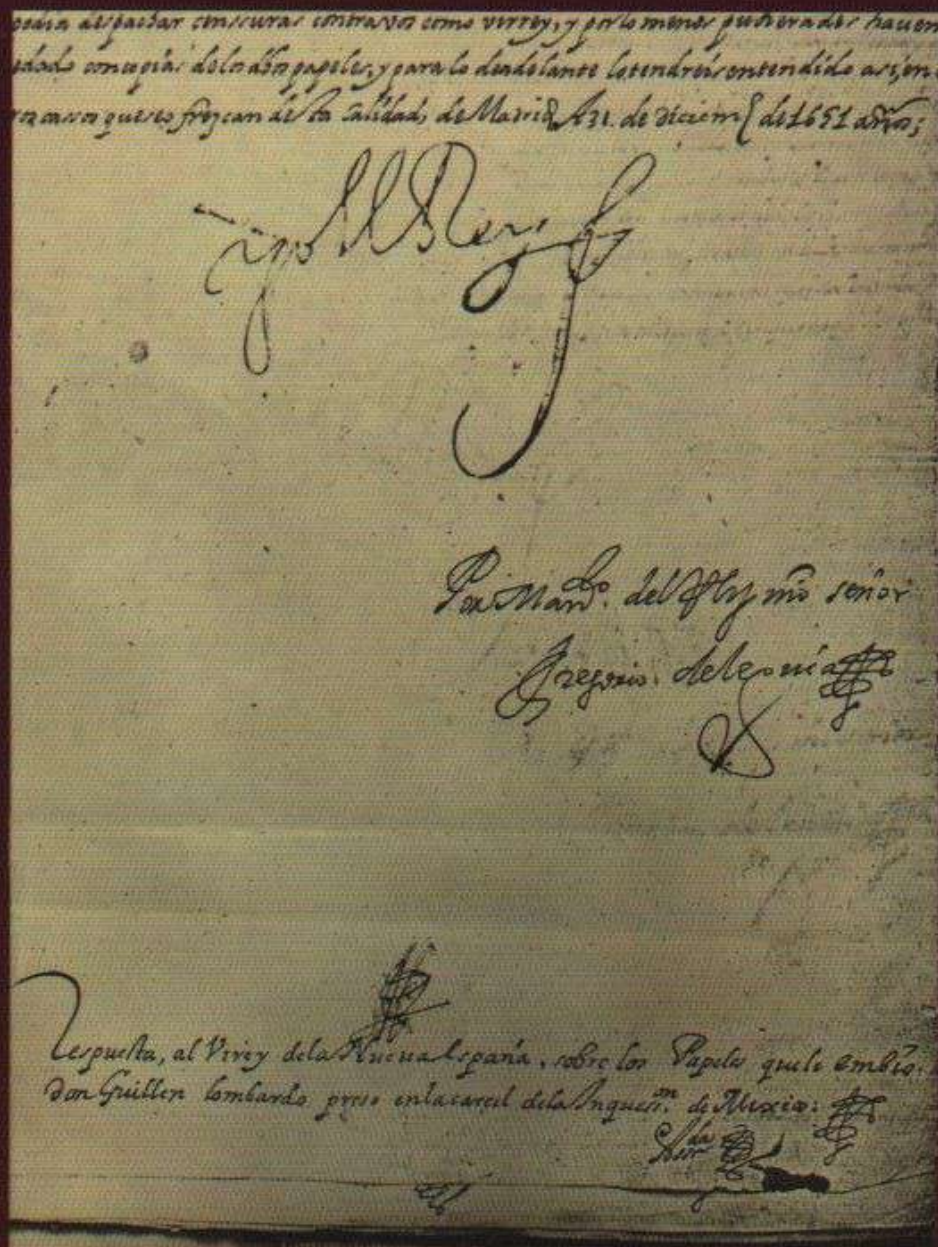 podia despachar censcuras contra vos como virrey, y por lo menos pudierades hauer
dado con copias de los dhos papeles, y para lo deadelante lo tendreis entendido asi, en
casos que se ofrezcan desta calidad, de Madrid A 31. de diciem de 1651 años;
yo el Rey
Por Mando. del Rey nro señor
Gregorio. de leguia
Respuesta, al Virey dela Nueua españa, sobre los Papeles que le embio.
Don Guillen lombardo preso en la carcel dela Inquisson. de Mexico: